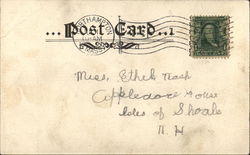 ...Post Card...
NORTHAMPTON
Miss. Ethel Nash
Appledore House
Isles of Shoals
N. H